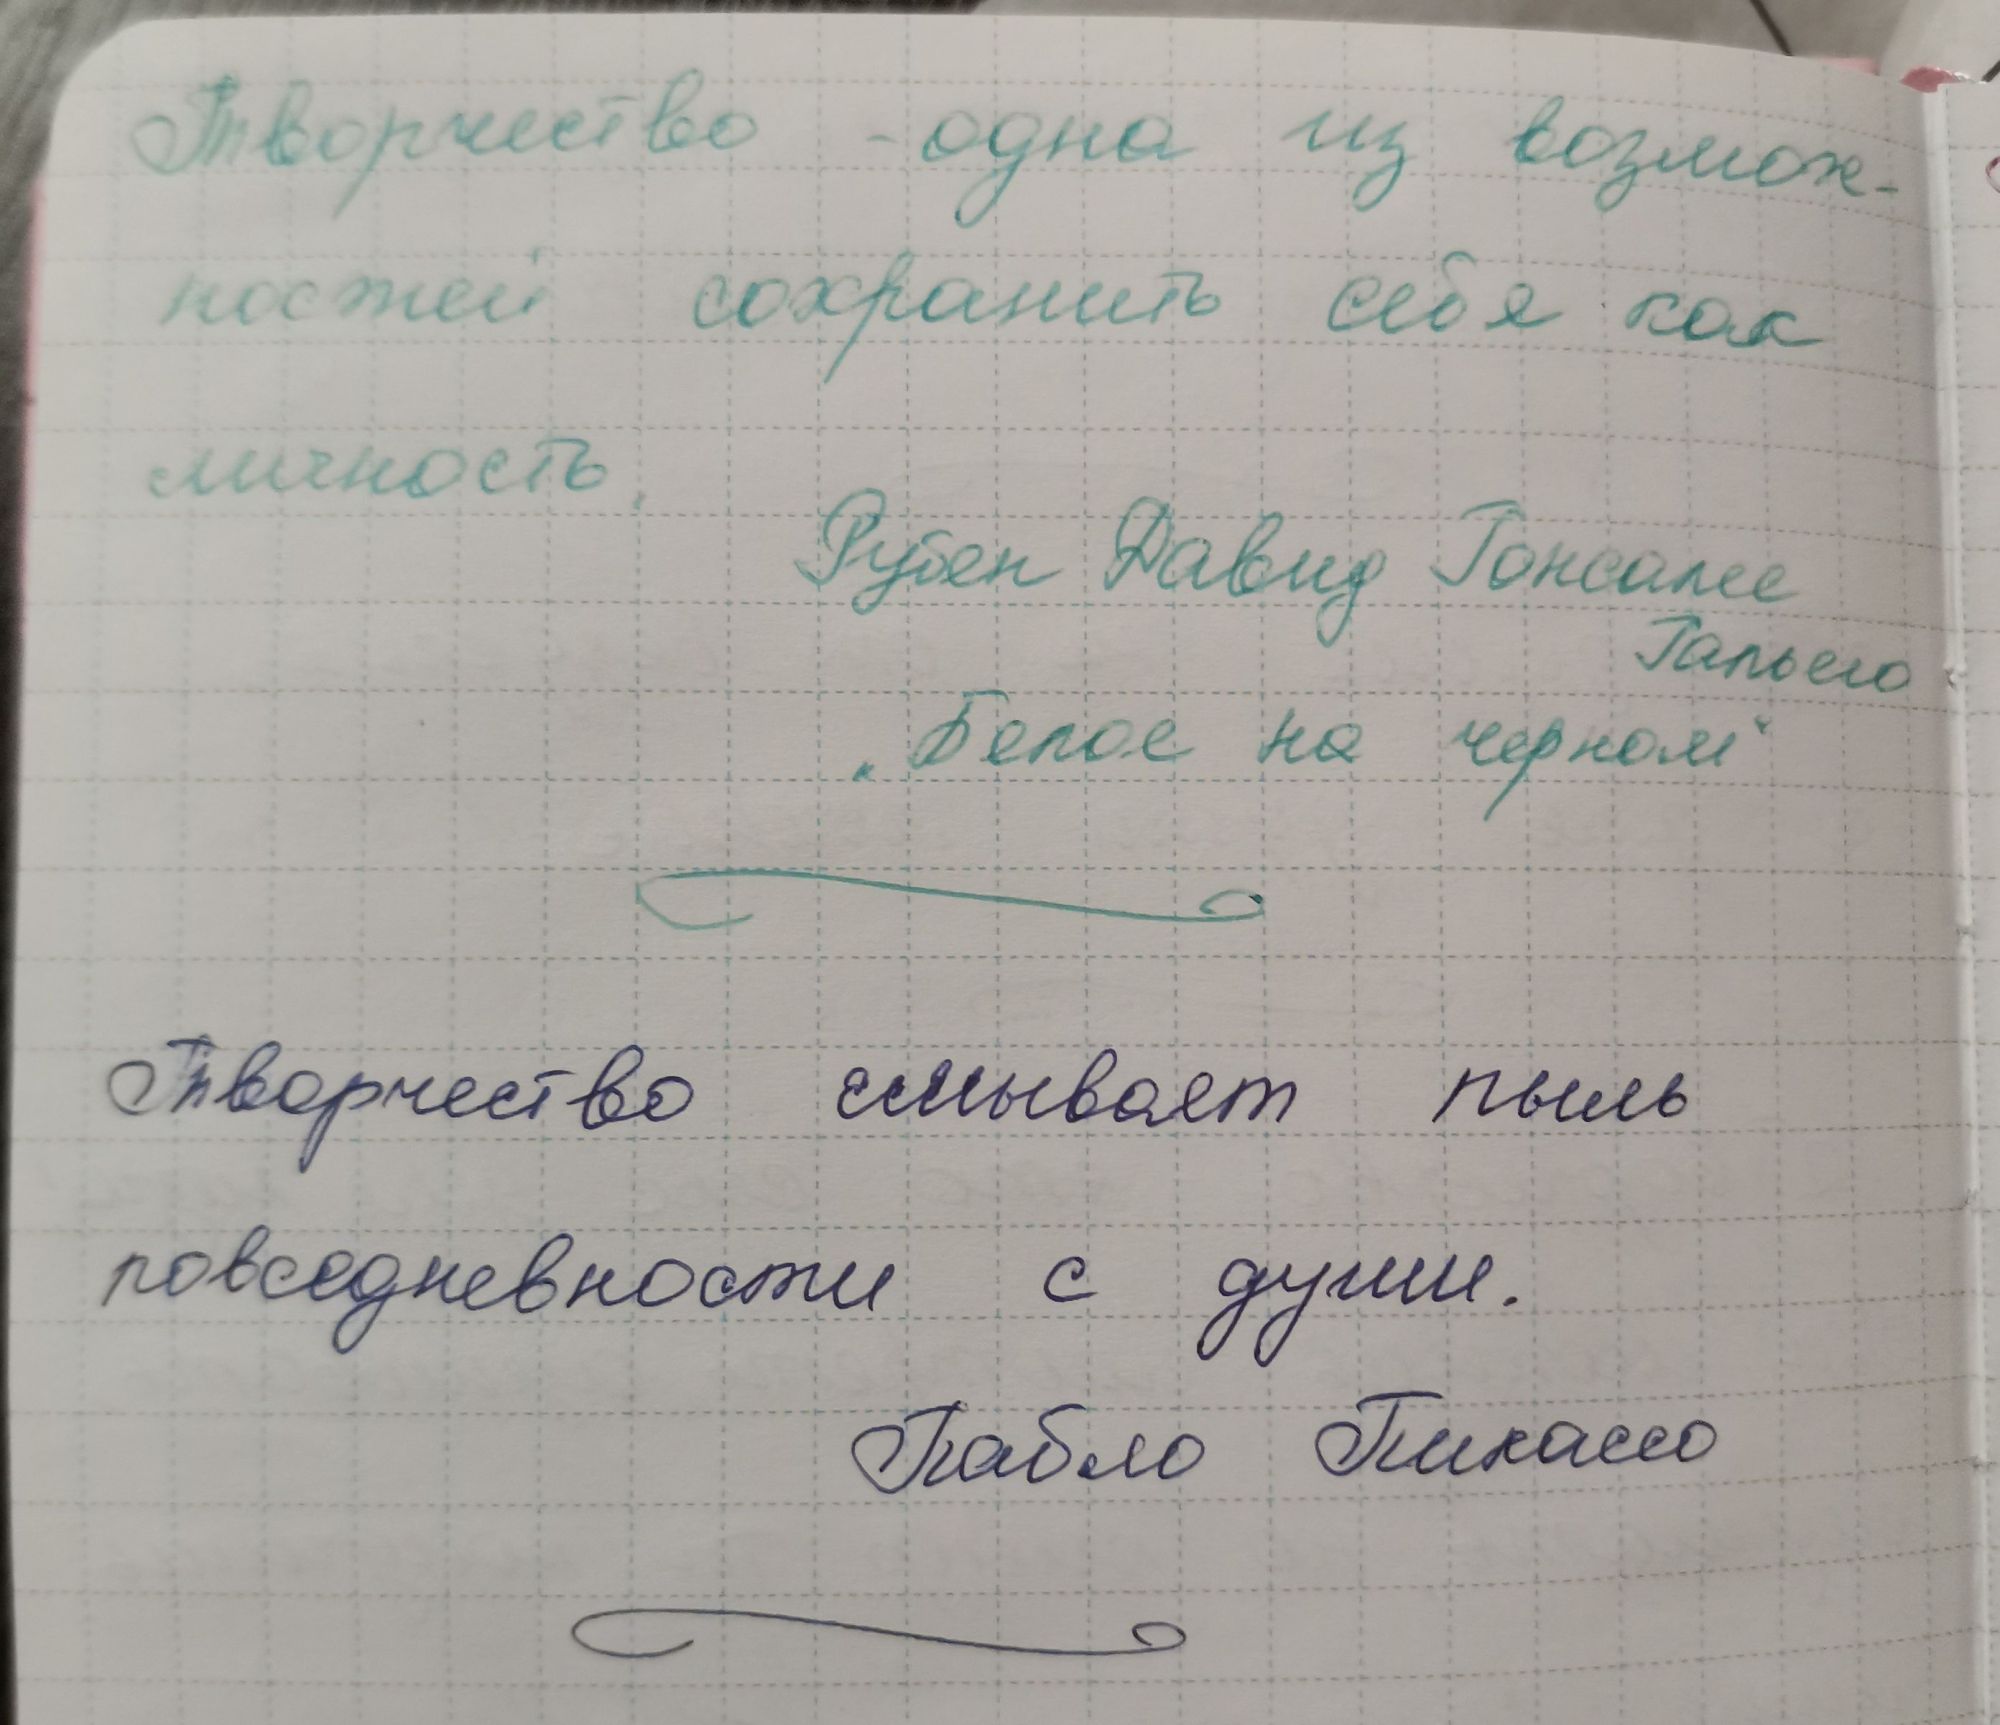 Творчество - одна из возмож-
ностей сохранить себя как
личность.
Рубен Давид Гонсалес
Гальего
„Белое на черном“
Творчество смывает пыль
повседневности с души.
Пабло Пикассо